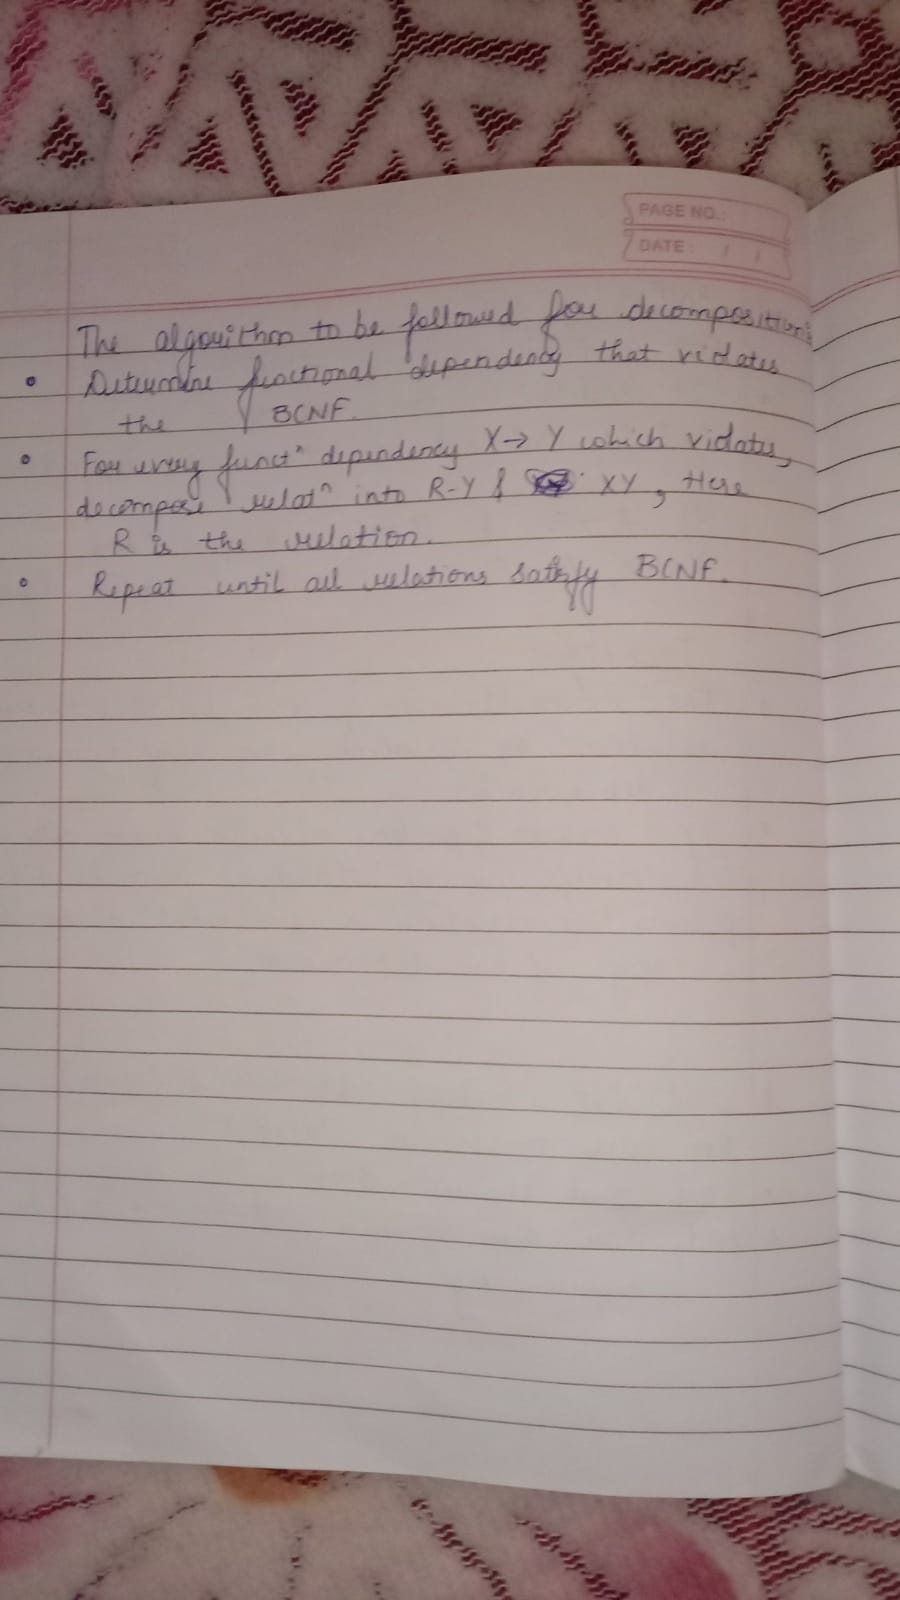 PAGE NO.:
DATE: / /
The algorithm to be followed for decomposition:
• Determine functional dependency that violates
the BCNF.
• For every functⁿ dependency X→ Y which violates,
decompose relatⁿ into R-Y & XY, Here
R is the relation.
• Repeat until all relations satisfy BCNF.